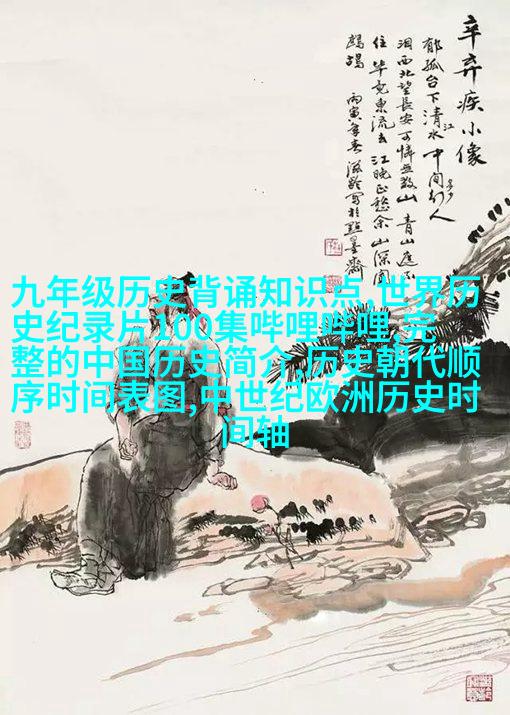 辛弃疾小像
郁孤台下清江水中间多少行人
泪西北望長安可憐無数山青山遮不
住毕竟東流去江晚正愁余山深闻
鹧鸪 丙寅年春滋龄写於點墨齋
九年级历史背诵知识点,世界历
史纪录片100集哔哩哔哩,完
整的中国历史简介,历史朝代顺
序时间表图,中世纪欧洲历史时
间轴